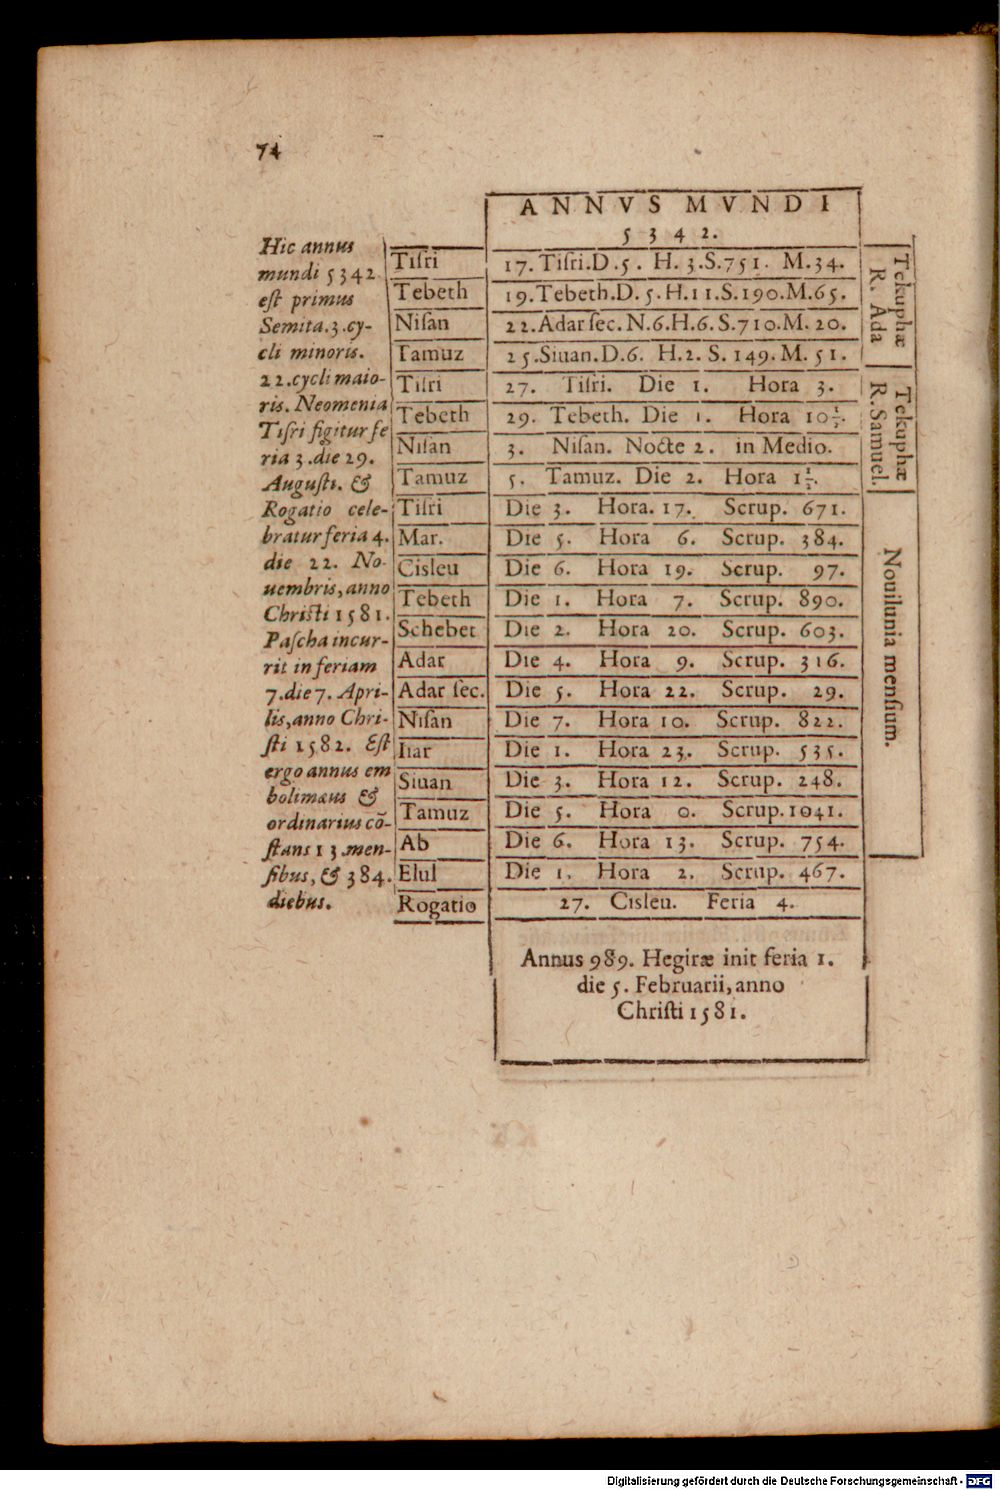 74
ANNVS MVNDI
5342.
Hic annus
mundi 5342
est primus
Semita.3.cy-
cli minoris.
22.cycli maio-
ris. Neomenia
Tisri figitur fe
ria 3.die 29.
Augusti. &
Rogatio cele-
bratur feria 4.
die 22. No-
uembris, anno
Christi 1581.
Pascha incur-
rit in feriam
7.die 7. Apri-
lis, anno Chri-
sti 1582. Est
ergo annus em
bolimæus &
ordinarius cō-
stans 13.men-
sibus, & 384.
diebus.
Tisri 17. Tisri.D.5. H.3.S.751. M.34.
Tebeth 19.Tebeth.D.5.H.11.S.190.M.65.
Nisan 22.Adar sec.N.6.H.6.S.710.M.20.
Tamuz 25.Siuan.D.6. H.2. S.149.M.51.
Tisri 27. Tisri. Die 1. Hora 3.
Tebeth 29. Tebeth. Die 1. Hora 10½.
Nisan 3. Nisan. Nocte 2. in Medio.
Tamuz 5. Tamuz. Die 2. Hora 1½.
Tisri Die 3. Hora. 17. Scrup. 671.
Mar. Die 5. Hora 6. Scrup. 384.
Cisleu Die 6. Hora 19. Scrup. 97.
Tebeth Die 1. Hora 7. Scrup. 890.
Schebet Die 2. Hora 20. Scrup. 603.
Adar Die 4. Hora 9. Scrup. 316.
Adar sec. Die 5. Hora 22. Scrup. 29.
Nisan Die 7. Hora 10. Scrup. 822.
Iiar Die 1. Hora 23. Scrup. 535.
Siuan Die 3. Hora 12. Scrup. 248.
Tamuz Die 5. Hora 0. Scrup.1041.
Ab Die 6. Hora 13. Scrup. 754.
Elul Die 1. Hora 2. Scrup. 467.
Rogatio 27. Cisleu. Feria 4.
Tekuphæ
R. Ada
Tekuphæ
R. Samuel.
Nouilunia mensium.
Annus 989. Hegiræ init feria 1.
die 5. Februarii, anno
Christi 1581.
Digitalisierung gefördert durch die Deutsche Forschungsgemeinschaft - DFG